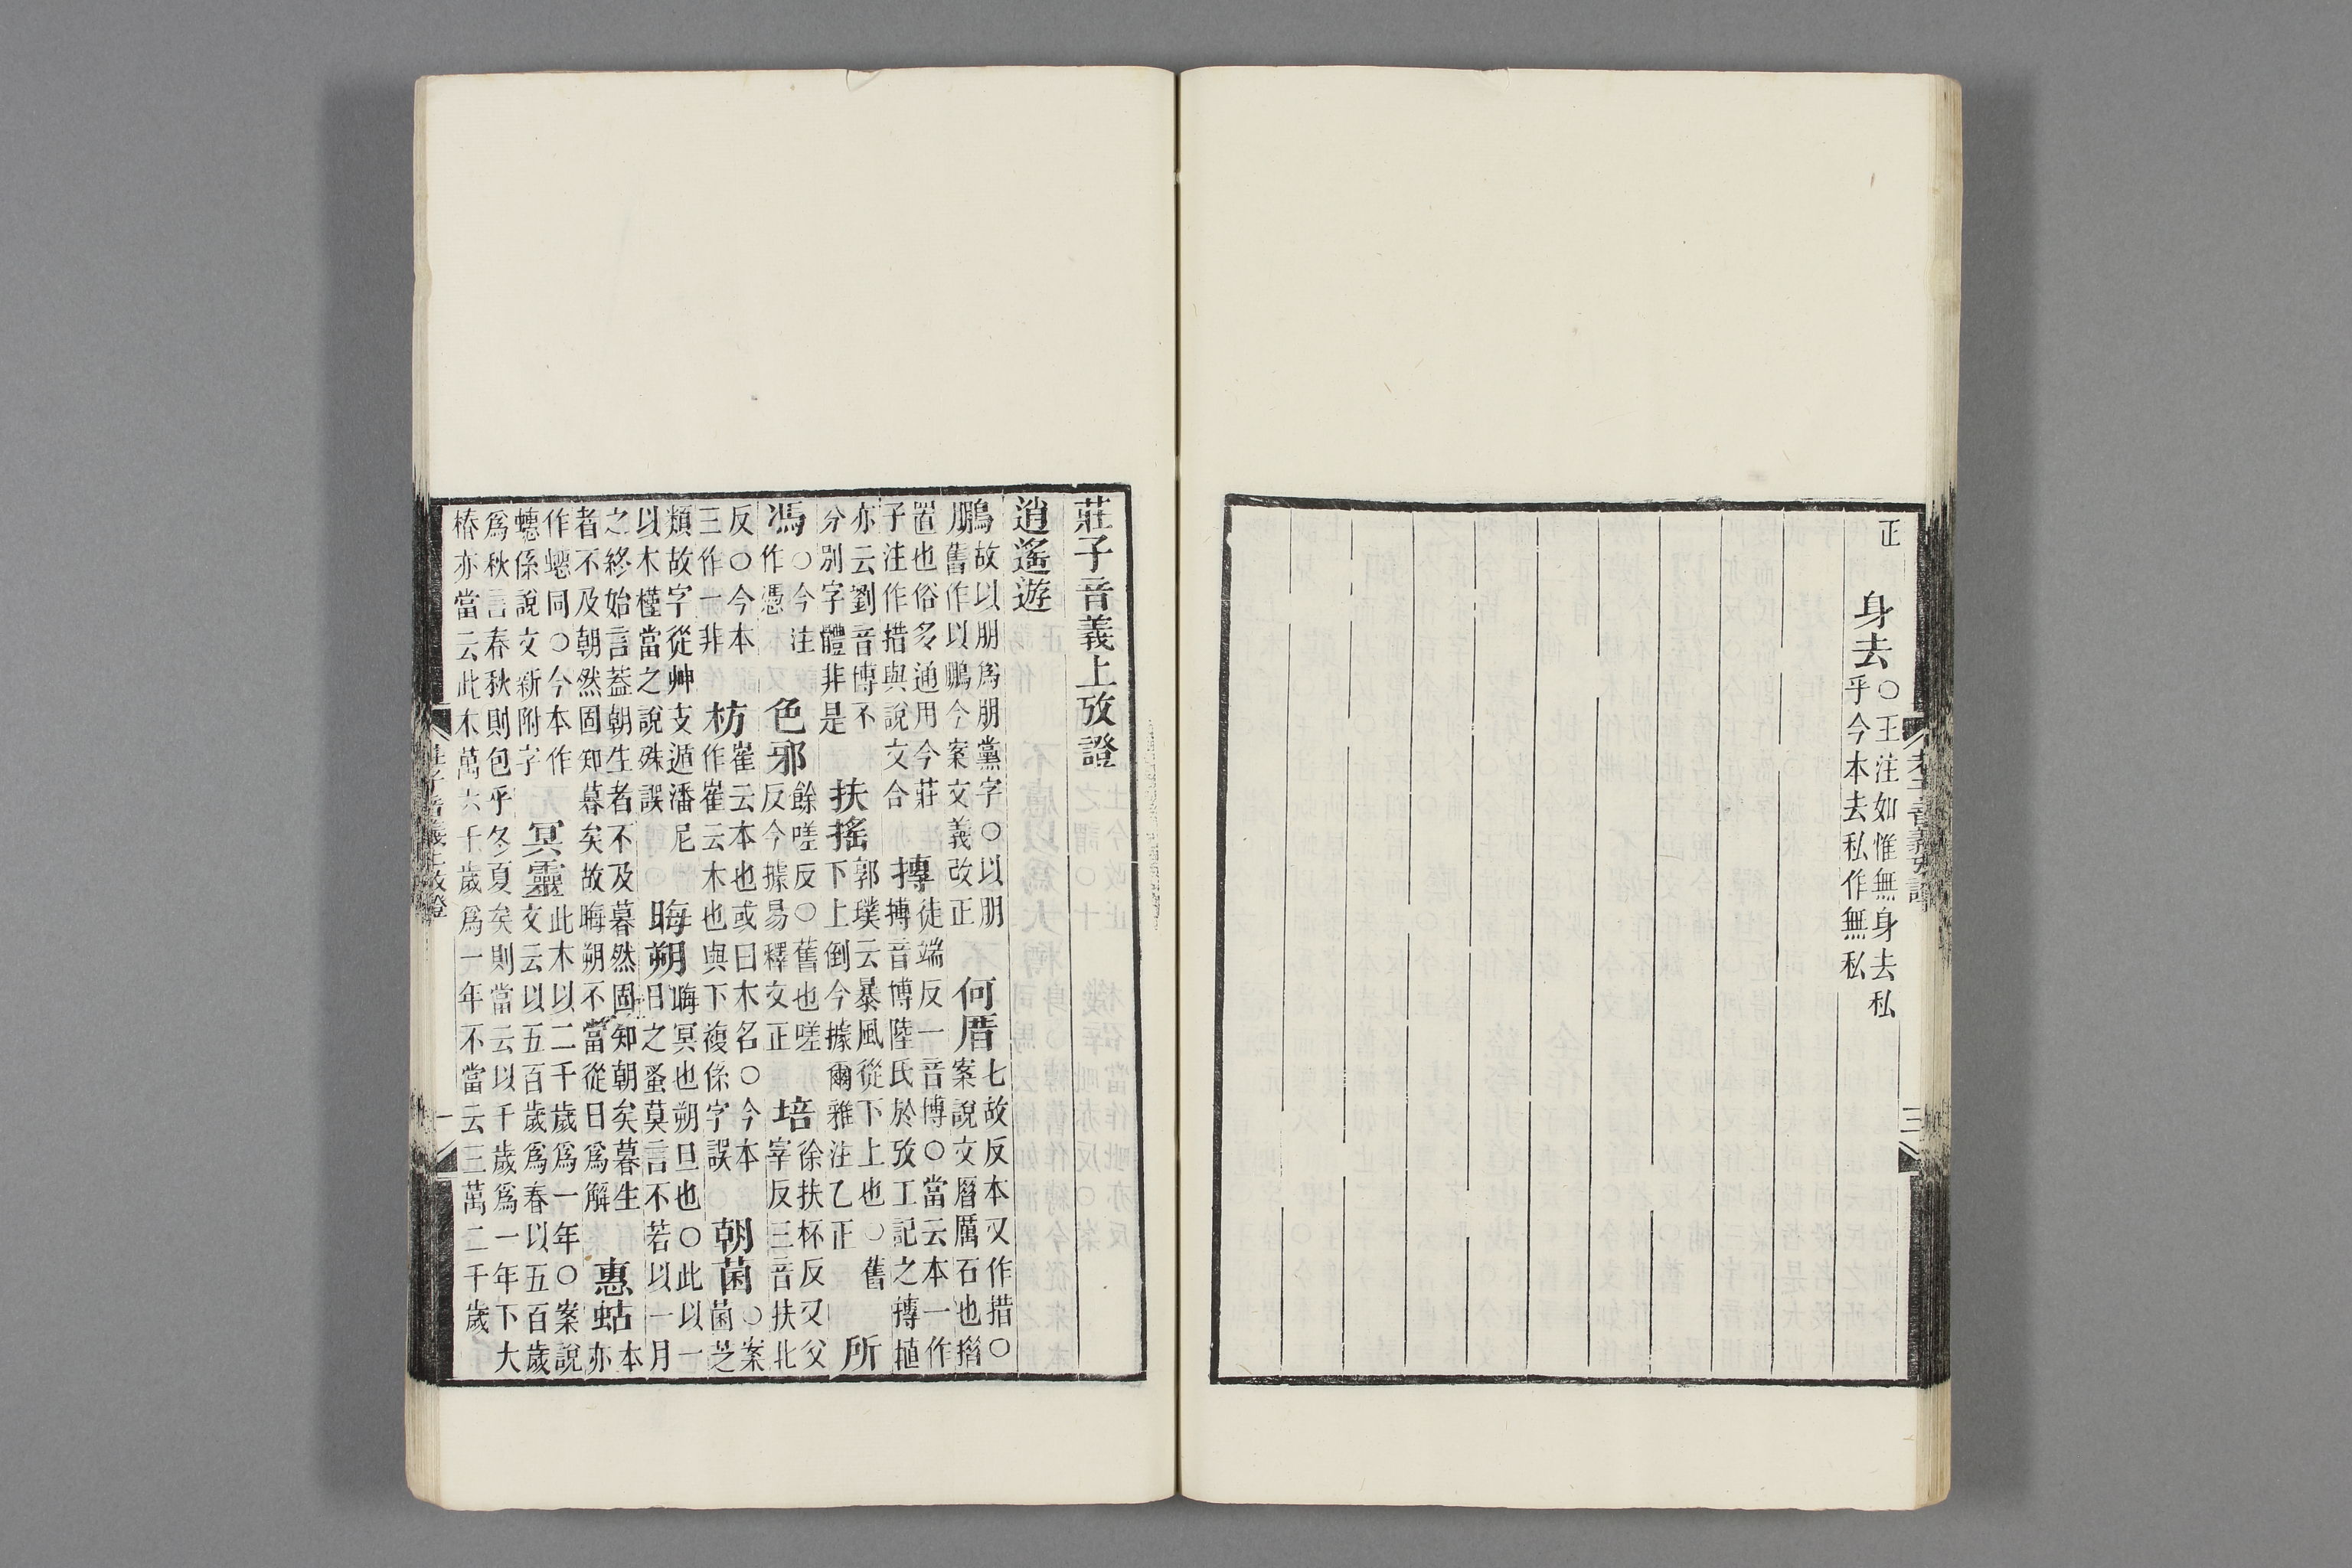 正
身去○王注如惟無身去私
乎今本去私作無私
老子音義攷證 三
莊子音義上攷證
逍遙遊
鵬故以朋爲朋黨字○以朋
朋舊作以鵬今案文義改正
何厝七故反本又作措○
案說文厝厲石也措
置也俗多通用今莊
子注作措與說文合
摶徒端反一音博○當云本一作
摶音博陸氏於攷工記之摶埴
亦云劉音博不
分別字體非是
扶搖郭璞云暴風從下上也○舊
下上倒今據爾雅注乙正
所
馮○今注
作憑
色邪餘嗟反○舊也嗟
反今據易釋文正
培徐扶杯反又父
宰反三音扶北
反○今本
三作一非
枋崔云本也或曰木名○今本
作崔云木也與下複係字誤
朝菌○案
菌芝
類故字從艸支遁潘尼
以木槿當之說殊誤
晦朔晦冥也朔旦也○此以一
日之蚤莫言不若以一月
之終始言葢朝生者不及暮然固知朝矣暮生
者不及朝然固知暮矣故晦朔不當從日爲解
惠蛄本
亦
作蟪同○今本作
蟪係說文新附字
冥靈此木以二千歲爲一年○案說
文云以五百歲爲春以五百歲
爲秋言春秋則包乎冬夏矣則當云以千歲爲一年下大
椿亦當云此木萬六千歲爲一年不當云三萬二千歲
莊子音義上攷證 一